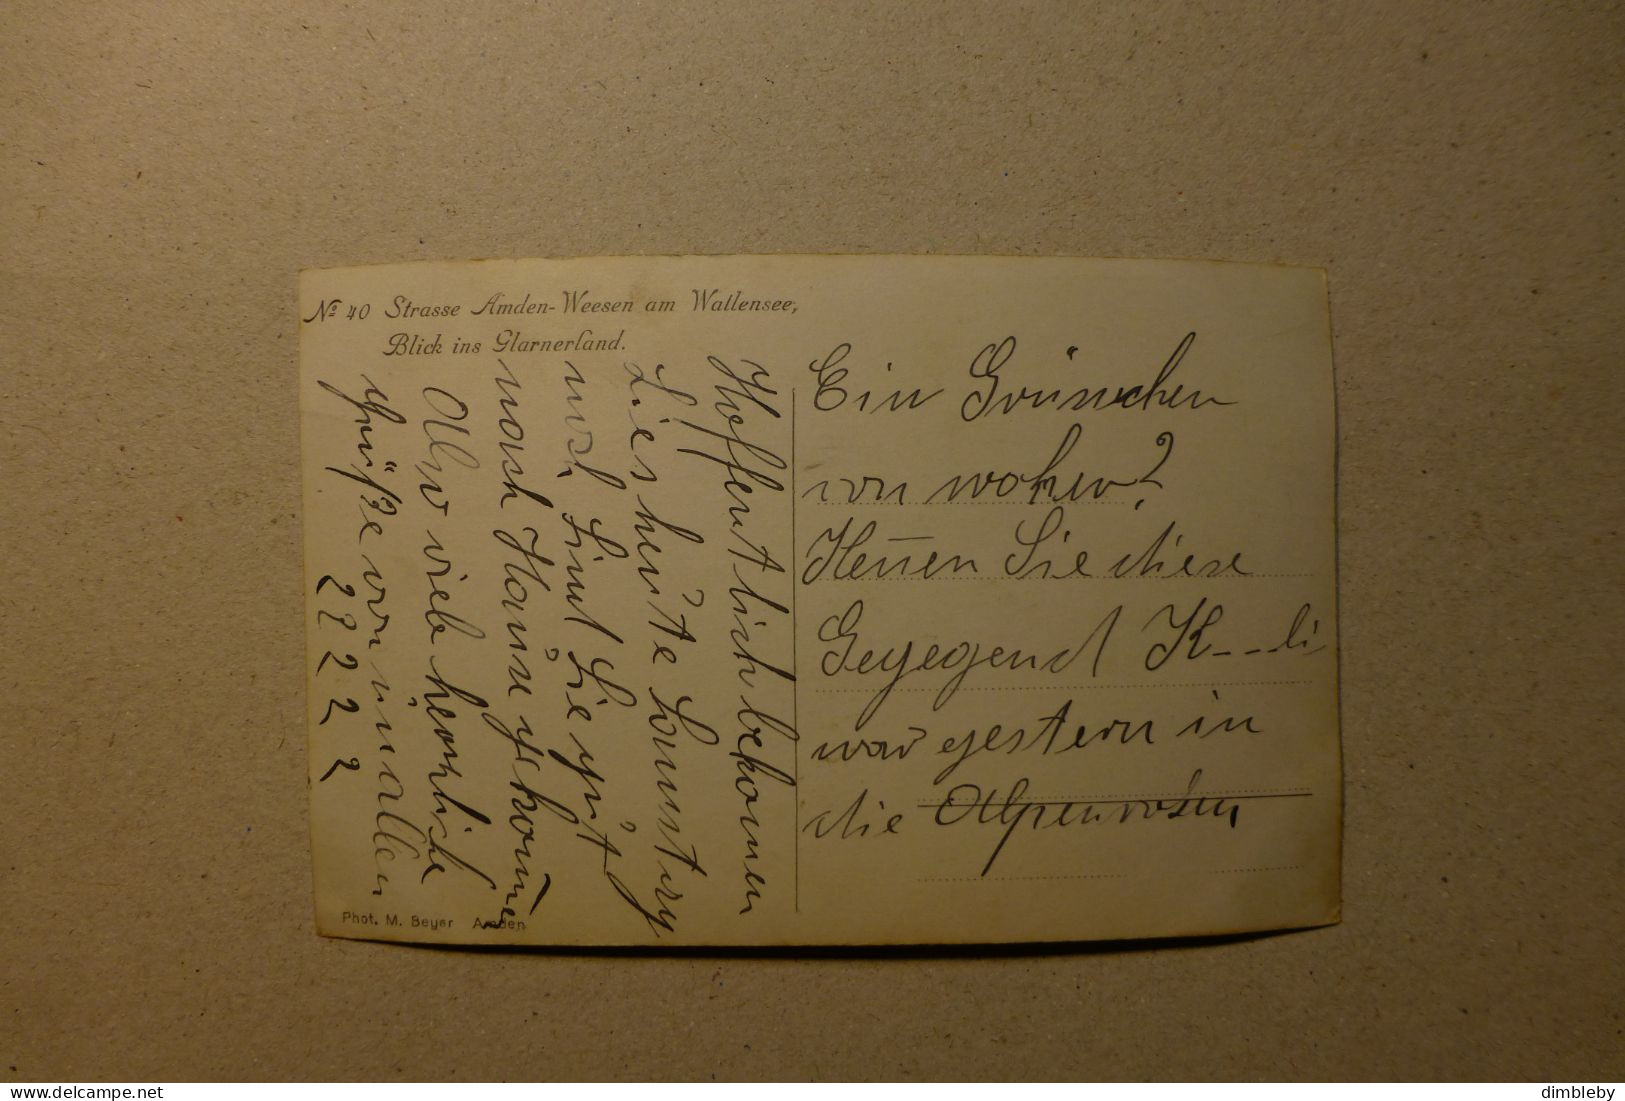 № 40 Strasse Amden-Weesen am Wallensee,
Blick ins Glarnerland.
Ein Grüsschen
von woher?
Kennen Sie diese
Gegegend K---li
war gestern in
die Alpenrosen
Hoffentlich bekomen
Sies heute Samstag
noch. Sind Sie gut
nach Hause gekommen
Also viele herzliche
Grüße von uns allen
? ? ? ? ?
Phot. M. Beyer Amden
delcampe.net
dimbleby